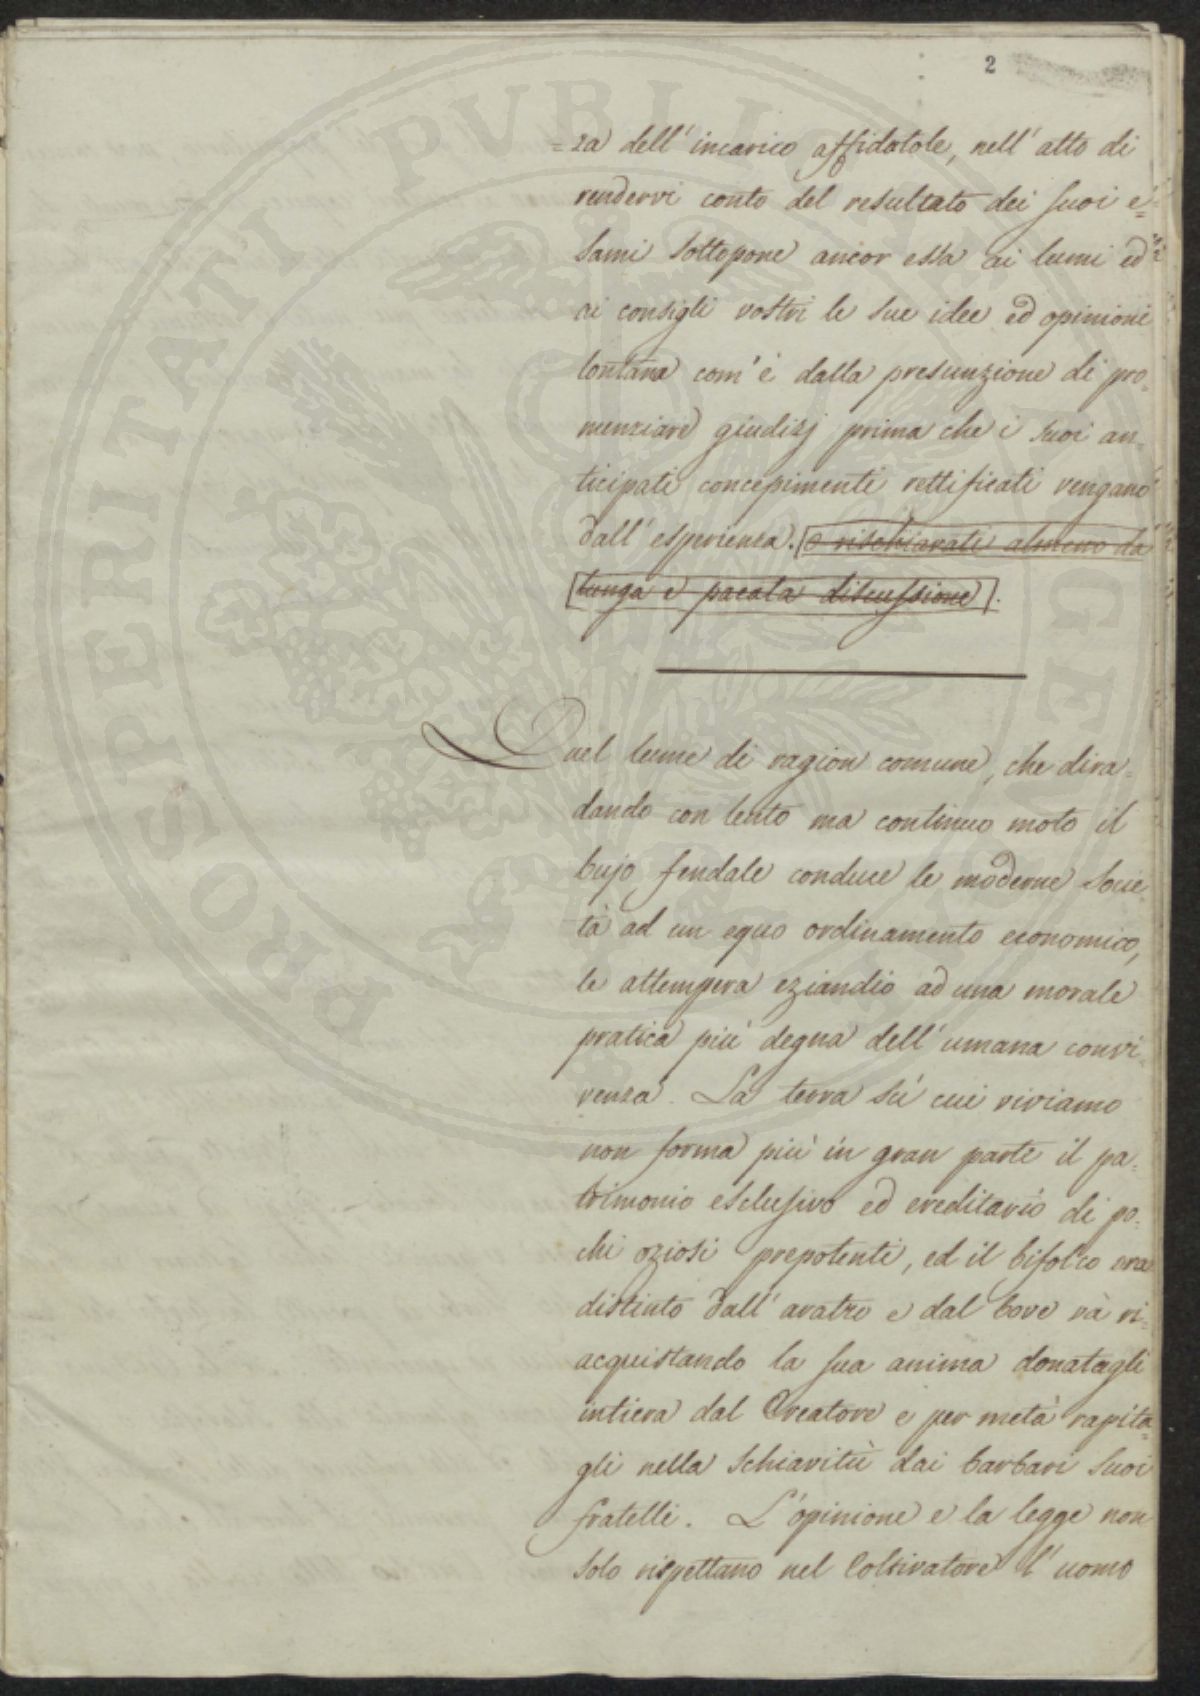 2
=za dell' incarico affidatole, nell' atto di
rendervi conto del resultato dei suoi e=
sami sottopone ancor essa ai lumi ed
ai consigli vostri le sue idee ed opinioni
lontana com' è dalla presunzione di pro=
nunziare giudizj prima che i suoi an=
ticipati concepimenti rettificati vengano
dall' esperienza. o rischiarati almeno da
lunga e pacata discussione.
Quel lume di ragion comune, che dira=
dando con lento ma continuo moto il
bujo feudale conduce le moderne socie
tà ad un equo ordinamento economico,
le attempera eziandio ad una morale
pratica più degna dell' umana convi=
venza. La terra sù cui viviamo
non forma più in gran parte il pa=
trimonio esclusivo ed ereditario di po=
chi oziosi prepotenti, ed il bifolco ora
distinto dall' aratro e dal bove và ri=
acquistando la sua anima donatagli
intiera dal Creatore e per metà rapita=
gli nella schiavitù dai barbari suoi
fratelli. L'opinione e la legge non
solo rispettano nel Coltivatore l' uomo
PROSPERITATI PVBLICAE AVGENDAE